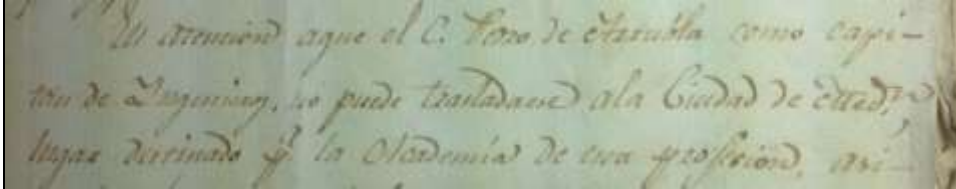 En atencion aque el C. Pedro de Arrubla como capi-
tan de Ingenieros, no puede trasladarse ala Ciudad de Med.n
lugar destinado p.a la Academia de esta profesion, asi-